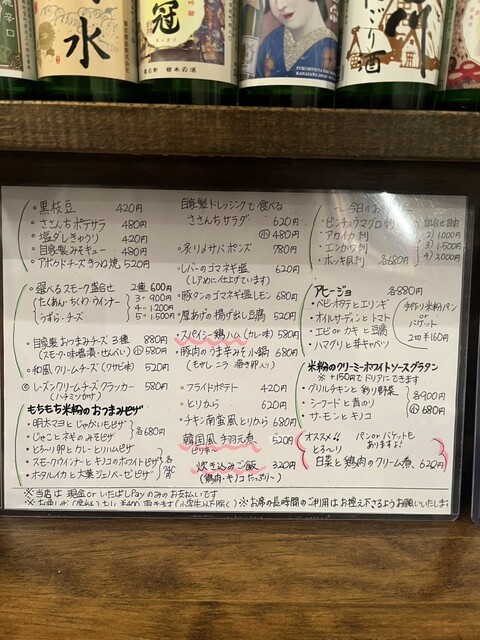 水
冠
栃木の酒
にごり酒
川
・黒枝豆 420円
・ささんちポテサラ 480円
・塩ダレきゅうり 420円
・自家製みそキュー 480円
・アボカドチーズきつね焼 520円
・選べるスモーク盛合せ 2種 600円
(たくあん・ちくわ・ウインナー 3〃 900円
うずら・チーズ 4〃 1,200円
5〃 1,500円
・自家製おつまみチーズ 3種 880円
(スモーク・味噌漬・せんべい) 小 580円
・和風クリームチーズ(ワサビ味) 520円
・レーズンクリームチーズクラッカー 580円
(ハチミツがけ)
もちもち米粉のおつまみピザ
・明太マヨとじゃがいもピザ
・じゃことネギのみそピザ 各680円
・とろ〜り卵とカレーとりハムピザ
・スモークウインナーとキノコのホワイトピザ
・ホタルイカと大葉ジェノベーゼピザ
自家製ドレッシングで食べる
ささんちサラダ 620円
小 480円
・炙りメサバポンズ 780円
・レバーのゴマネギ塩 620円
(レアめに仕上げています)
・豚タンのゴマネギ塩レモン 680円
・厚あげの揚げ出し豆腐 520円
・スパイシー鶏ハム(カレー味) 580円
・豚肉のうま辛みそ小鍋 680円
(もやし ニラ 温き卵入り)
・フライドポテト 420円
・とりから 620円
・チキン南蛮風とりから 680円
・韓国風手羽元煮 520円
ピリ辛〜
・炊き込みご飯 320円
(鶏肉・キノコたっぷり〜)
〜今日のお
・ビンチョウマグロ刺
・アカイカ刺
・エンガワ刺
・ホッキ貝刺 各680円
組合せ自由
2) 1,000円
3) 1,500円
4) 2,000円
アヒージョ 各880円
・ベビーホタテとエリンギ
・オイルサーディンとトマト
・エビorカキと豆腐
・ハマグリと芽キャベツ
手作り米粉パン
or
バゲット
2切¥160円
米粉のクリーミーホワイトソースグラタン
※+150円でドリアにできます
・グリルチキンと彩り野菜
・シーフードと青のり
・サーモンとキノコ
各900円
小 680円
オススメ!! パンorバケットも
ありますよ!
とろ〜り
白菜と鶏肉のクリーム煮 620円
※当店は 現金 or いたばしPayのみのお支払いです
※お席の長時間のご利用はお控え下さるようお願いいたします